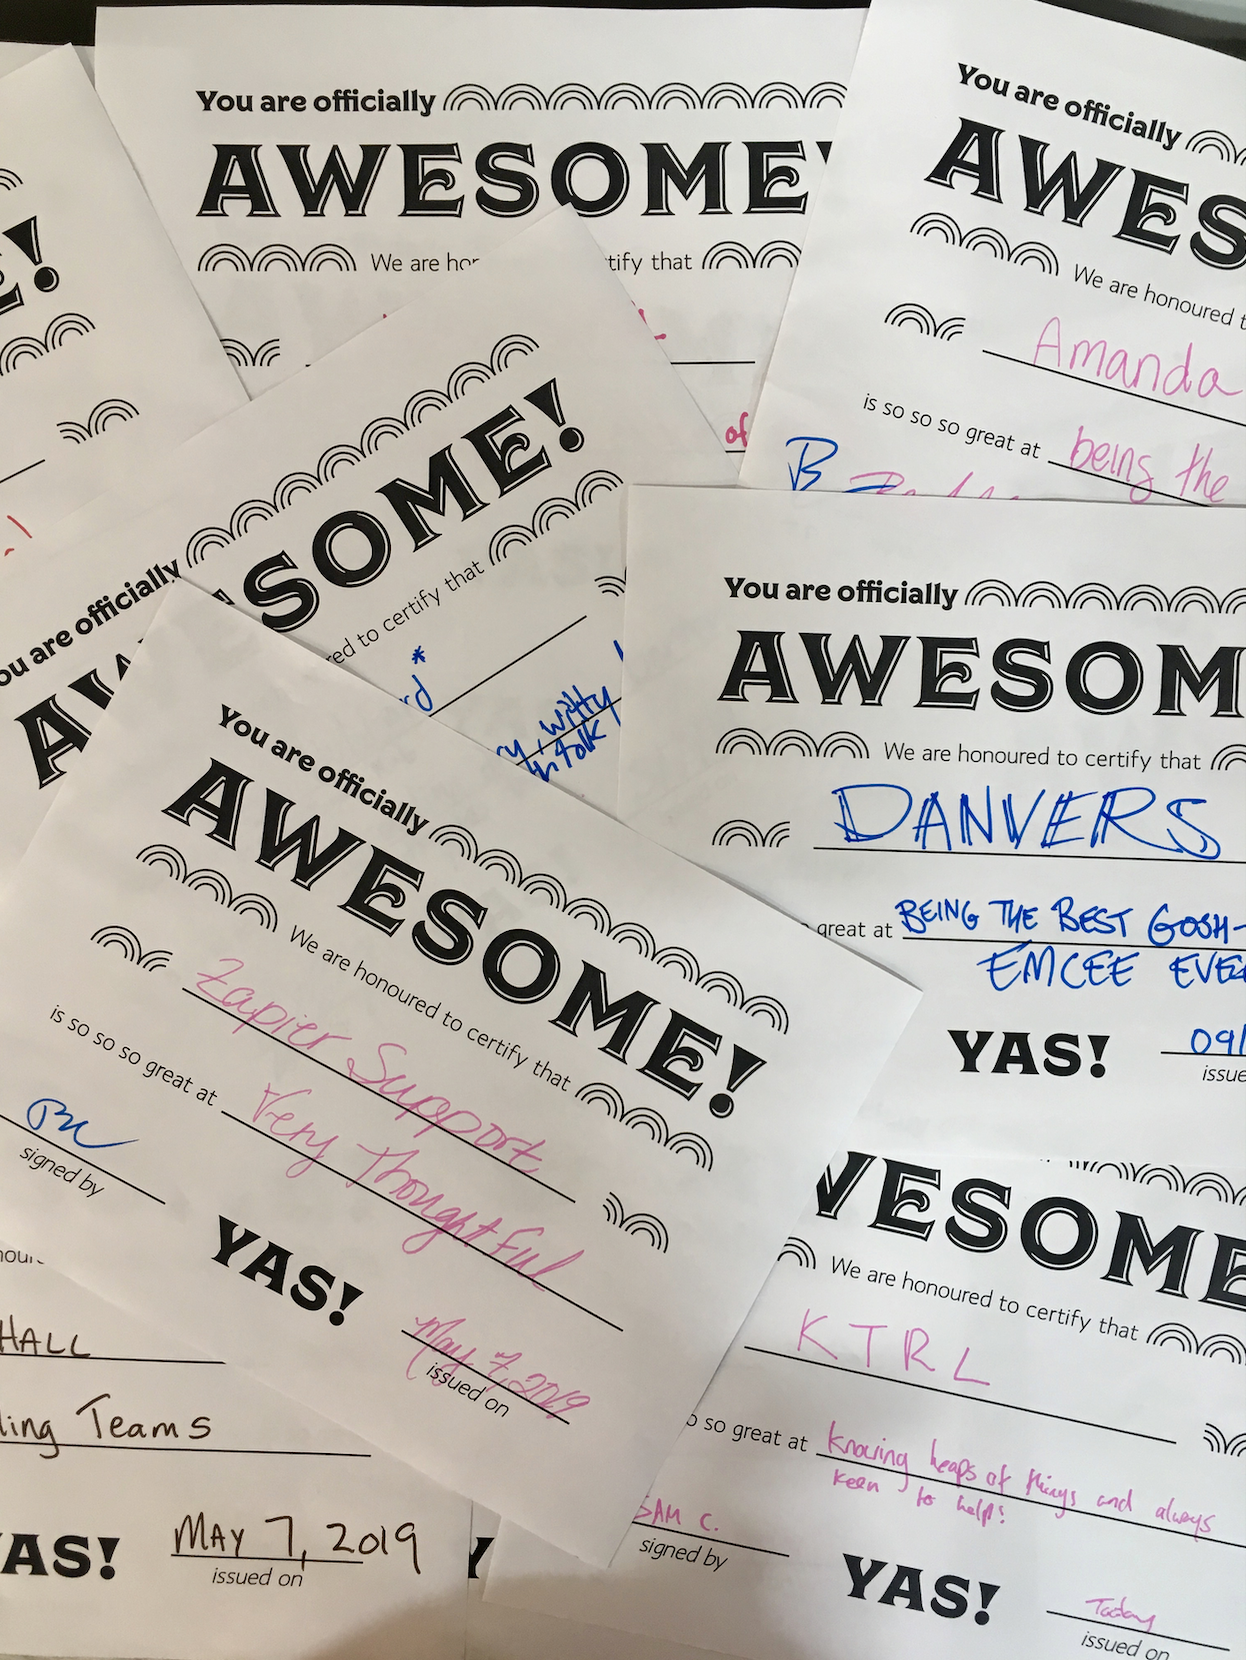 You are officially
AWESOME!
We are hon
tify that
of
You are officially
AWES
We are honoured t
Amanda
is so so so great at being the
B
E!
ou are officially
SOME!
red to certify that
rd *
ry, witty
folk
You are officially
AWESOM
We are honoured to certify that
DANVERS
great at BEING THE BEST GOSH-
EMCEE EVE
YAS!
09/
issue
You are officially
AWESOME!
We are honoured to certify that
Zapier Support
is so so so great at Very Thoughtful
signed by
YAS!
May 7, 2019
issued on
nour
HALL
ling Teams
AS!
MAY 7, 2019
issued on
WESOME
We are honoured to certify that
KTRL
o so great at knowing heaps of things and always
keen to help!
SAM C.
signed by
YAS!
Today
issued on
Y